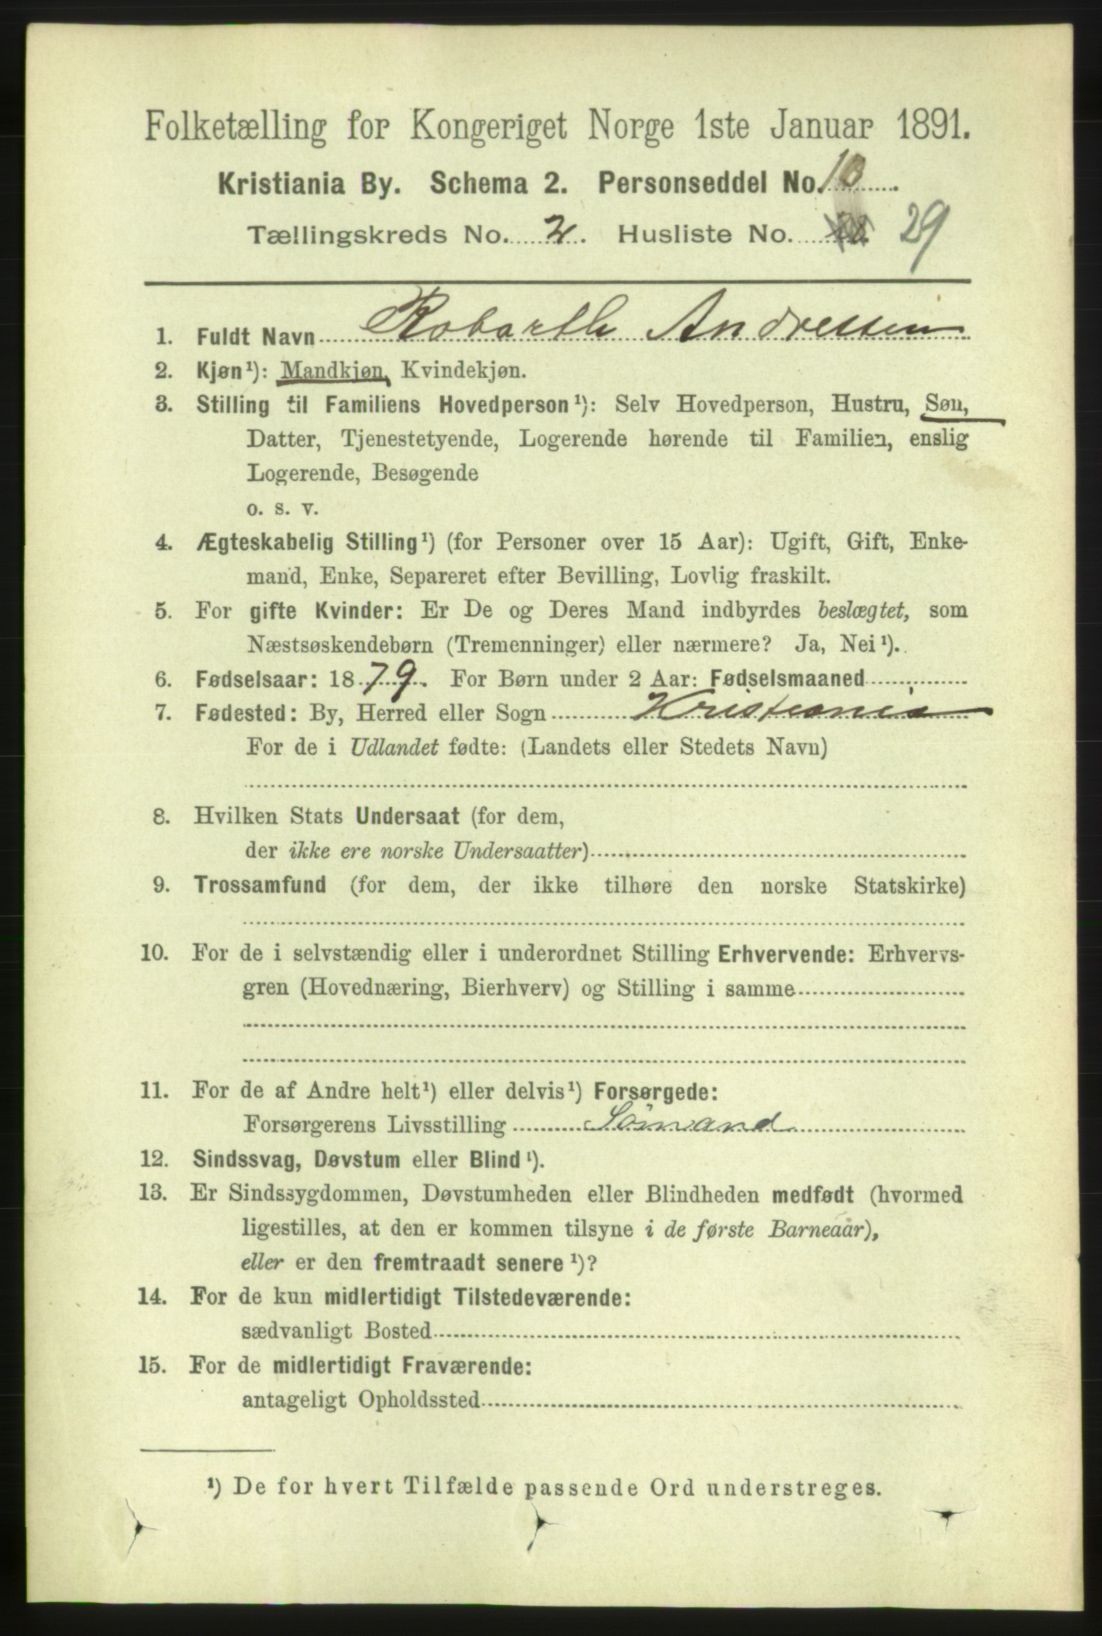 Folketælling for Kongeriget Norge 1ste Januar 1891.
Kristiania By. Schema 2. Personseddel No. 10.
Tællingskreds No. 2. Husliste No. 29
1. Fuldt Navn Robarth Andressen
2. Kjøn¹): Mandkjøn, Kvindekjøn.
3. Stilling til Familiens Hovedperson¹): Selv Hovedperson, Hustru, Søn,
Datter, Tjenestetyende, Logerende hørende til Familien, enslig
Logerende, Besøgende
o. s. v.
4. Ægteskabelig Stilling¹) (for Personer over 15 Aar): Ugift, Gift, Enke-
mand, Enke, Separeret efter Bevilling, Lovlig fraskilt.
5. For gifte Kvinder: Er De og Deres Mand indbyrdes beslægtet, som
Næstsøskendebørn (Tremenninger) eller nærmere? Ja, Nei¹).
6. Fødselsaar: 1879. For Børn under 2 Aar: Fødselsmaaned
7. Fødested: By, Herred eller Sogn Kristiania
For de i Udlandet fødte: (Landets eller Stedets Navn)
8. Hvilken Stats Undersaat (for dem,
der ikke ere norske Undersaatter)
9. Trossamfund (for dem, der ikke tilhøre den norske Statskirke)
10. For de i selvstændig eller i underordnet Stilling Erhvervende: Erhvervs-
gren (Hovednæring, Bierhverv) og Stilling i samme
11. For de af Andre helt¹) eller delvis¹) Forsørgede:
Forsørgerens Livsstilling Sømand
12. Sindssvag, Døvstum eller Blind¹).
13. Er Sindssygdommen, Døvstumheden eller Blindheden medfødt (hvormed
ligestilles, at den er kommen tilsyne i de første Barneaar),
eller er den fremtraadt senere¹)?
14. For de kun midlertidigt Tilstedeværende:
sædvanligt Bosted
15. For de midlertidigt Fraværende:
antageligt Opholdssted
¹) De for hvert Tilfælde passende Ord understreges.